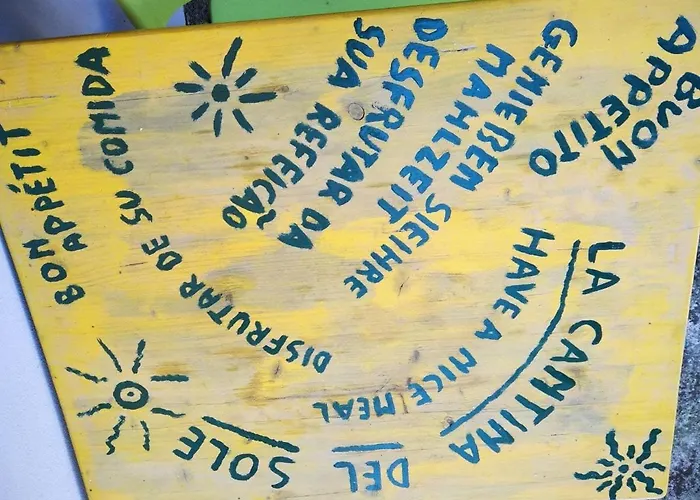 LA CANTINA
DEL
SOLE
HAVE A NICE MEAL
DISFRUTAR DE SU COMIDA
BON
APPÉTIT
DESFRUTAR DA
SUA REFEIÇÃO
GENIEßEN SIE IHRE
MAHLZEIT
BUON
APPETITO